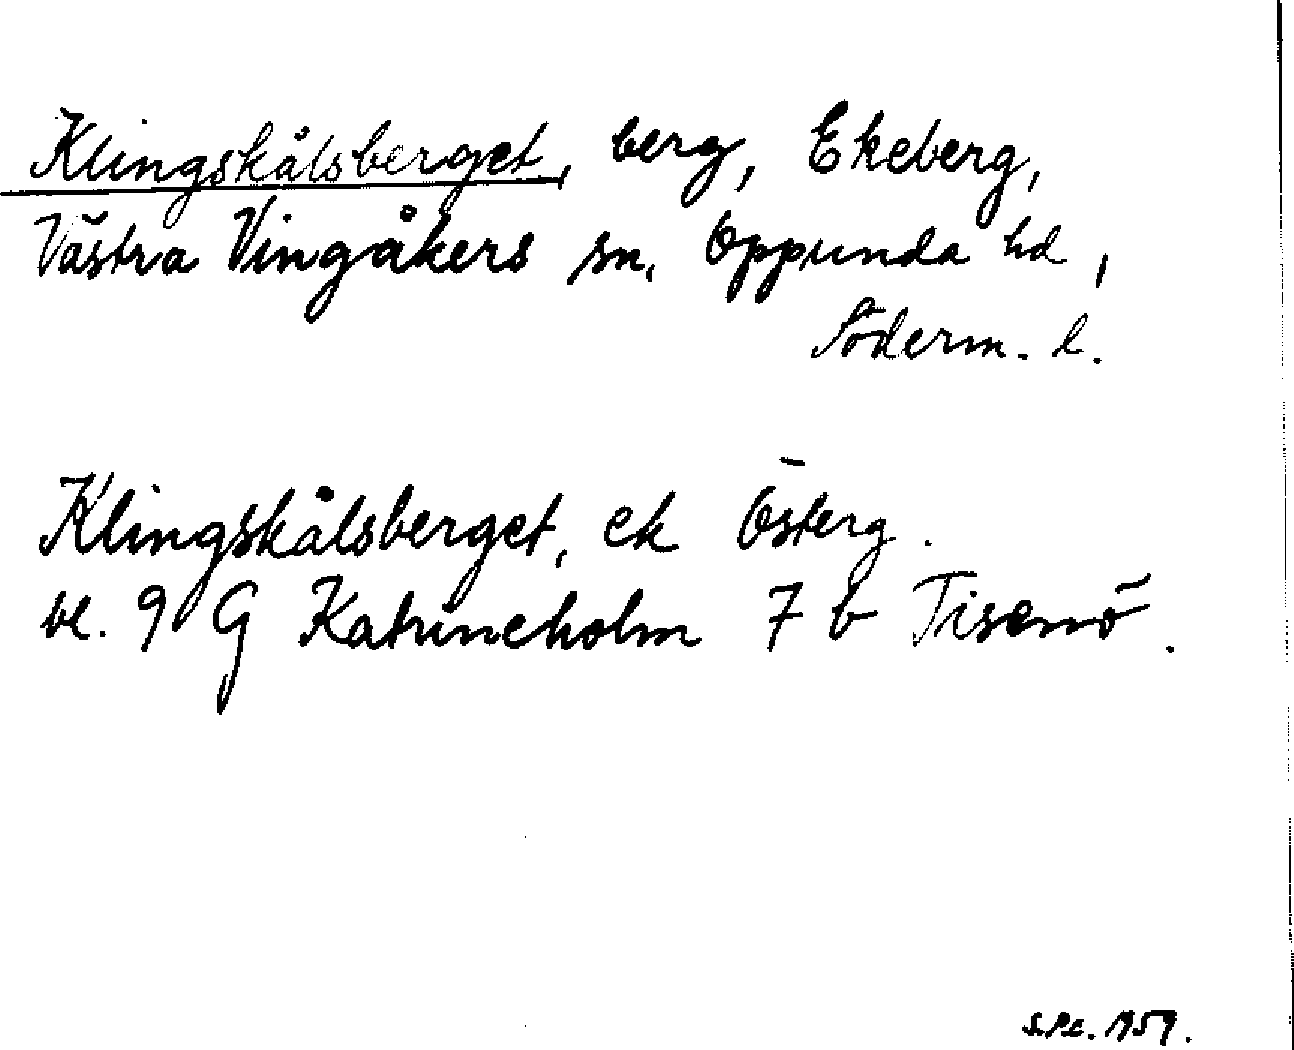 Klingskålsberget, berg, Ekeberg,
Västra Vingåkers sn, Oppunda hd,
Söderm. l.
Klingskålsberget, ek Österg.
bl. 9 G Katrineholm 7 b Tisenö.
S.P.E. 1959.